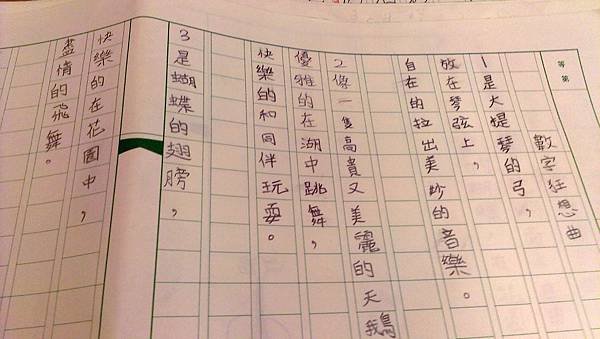 等第
數字狂想曲
1是大提琴的弓,
放在琴弦上,
自在的拉出美妙的音樂。
2像一隻高貴又美麗的天鵝
優雅的在湖中跳舞,
快樂的和同伴玩耍。
3是蝴蝶的翅膀,
快樂的在花園中,
盡情的飛舞。